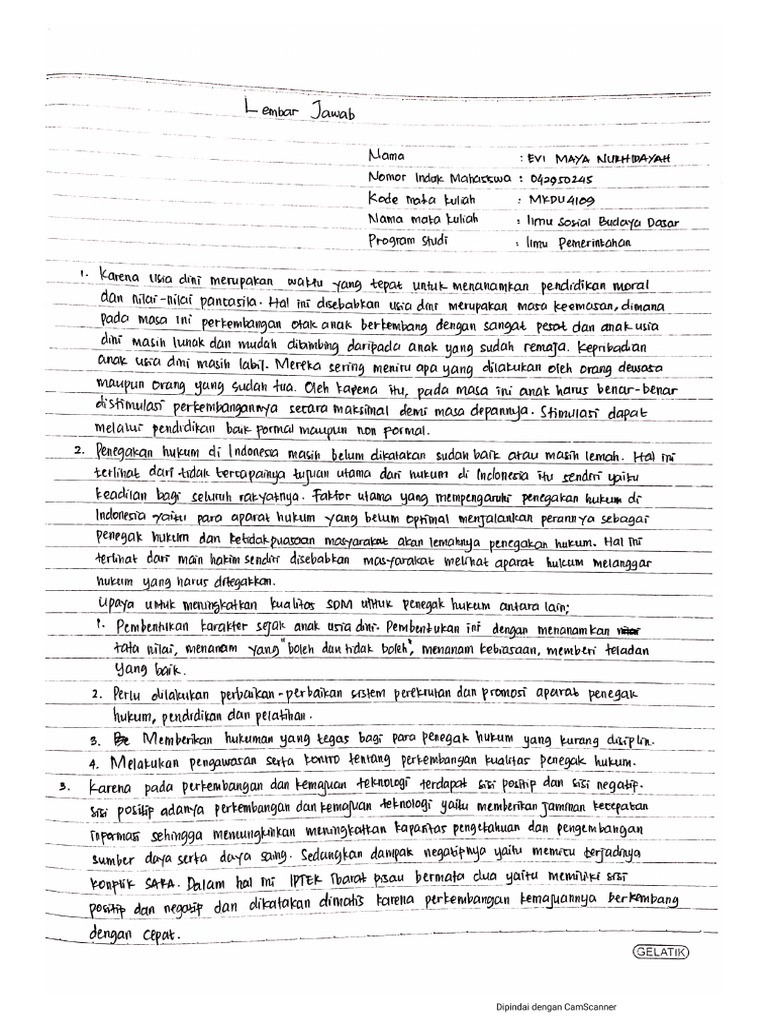 Lembar Jawab
Nama : EVI MAYA NURHIDAYAH
Nomor Induk Mahasiswa : 042950245
Kode mata kuliah : MKDU4109
Nama mata kuliah : Ilmu Sosial Budaya Dasar
Program studi : Ilmu Pemerintahan
1. Karena usia dini merupakan waktu yang tepat untuk menanamkan pendidikan moral
dan nilai-nilai pancasila. Hal ini disebabkan usia dini merupakan masa keemasan, dimana
pada masa ini perkembangan otak anak berkembang dengan sangat pesat dan anak usia
dini masih lunak dan mudah dibimbing daripada anak yang sudah remaja. Kepribadian
anak usia dini masih labil. Mereka sering meniru apa yang dilakukan oleh orang dewasa
maupun orang yang sudah tua. Oleh karena itu, pada masa ini anak harus benar-benar
distimulasi perkembangannya secara maksimal demi masa depannya. Stimulasi dapat
melalui pendidikan baik formal maupun non formal.
2. Penegakan hukum di Indonesia masih belum dikatakan sudah baik atau masih lemah. Hal ini
terlihat dari tidak tercapainya tujuan utama dari hukum di Indonesia itu sendiri yaitu
keadilan bagi seluruh rakyatnya. Faktor utama yang mempengaruhi penegakan hukum di
Indonesia yaitu para aparat hukum yang belum optimal menjalankan perannya sebagai
penegak hukum dan ketidakpuasaan masyarakat akan lemahnya penegakan hukum. Hal ini
terlihat dari main hakim sendiri disebabkan masyarakat melihat aparat hukum melanggar
hukum yang harus ditegakkan.
Upaya untuk meningkatkan kualitas SDM untuk penegak hukum antara lain;
1. Pembentukan karakter sejak anak usia dini. Pembentukan ini dengan menanamkan
tata nilai, menanam yang "boleh dan tidak boleh", menanam kebiasaan, memberi teladan
yang baik.
2. Perlu dilakukan perbaikan-perbaikan sistem perekrutan dan promosi aparat penegak
hukum, pendidikan dan pelatihan.
3. Memberikan hukuman yang tegas bagi para penegak hukum yang kurang disiplin.
4. Melakukan pengawasan serta kontro tentang perkembangan kualitas penegak hukum.
3. Karena pada perkembangan dan kemajuan teknologi terdapat sisi positip dan sisi negatip.
Sisi positip adanya perkembangan dan kemajuan teknologi yaitu memberikan jaminan kecepatan
informasi sehingga memungkinkan meningkatkan kapasitas pengetahuan dan pengembangan
sumber daya serta daya saing. Sedangkan dampak negatipnya yaitu memicu terjadinya
konplik SARA. Dalam hal ini IPTEK ibarat pisau bermata dua yaitu memiliki sisi
positip dan negatip dan dikatakan dimatis karena perkembangan kemajuannya berkembang
dengan cepat.
GELATIK
Dipindai dengan CamScanner